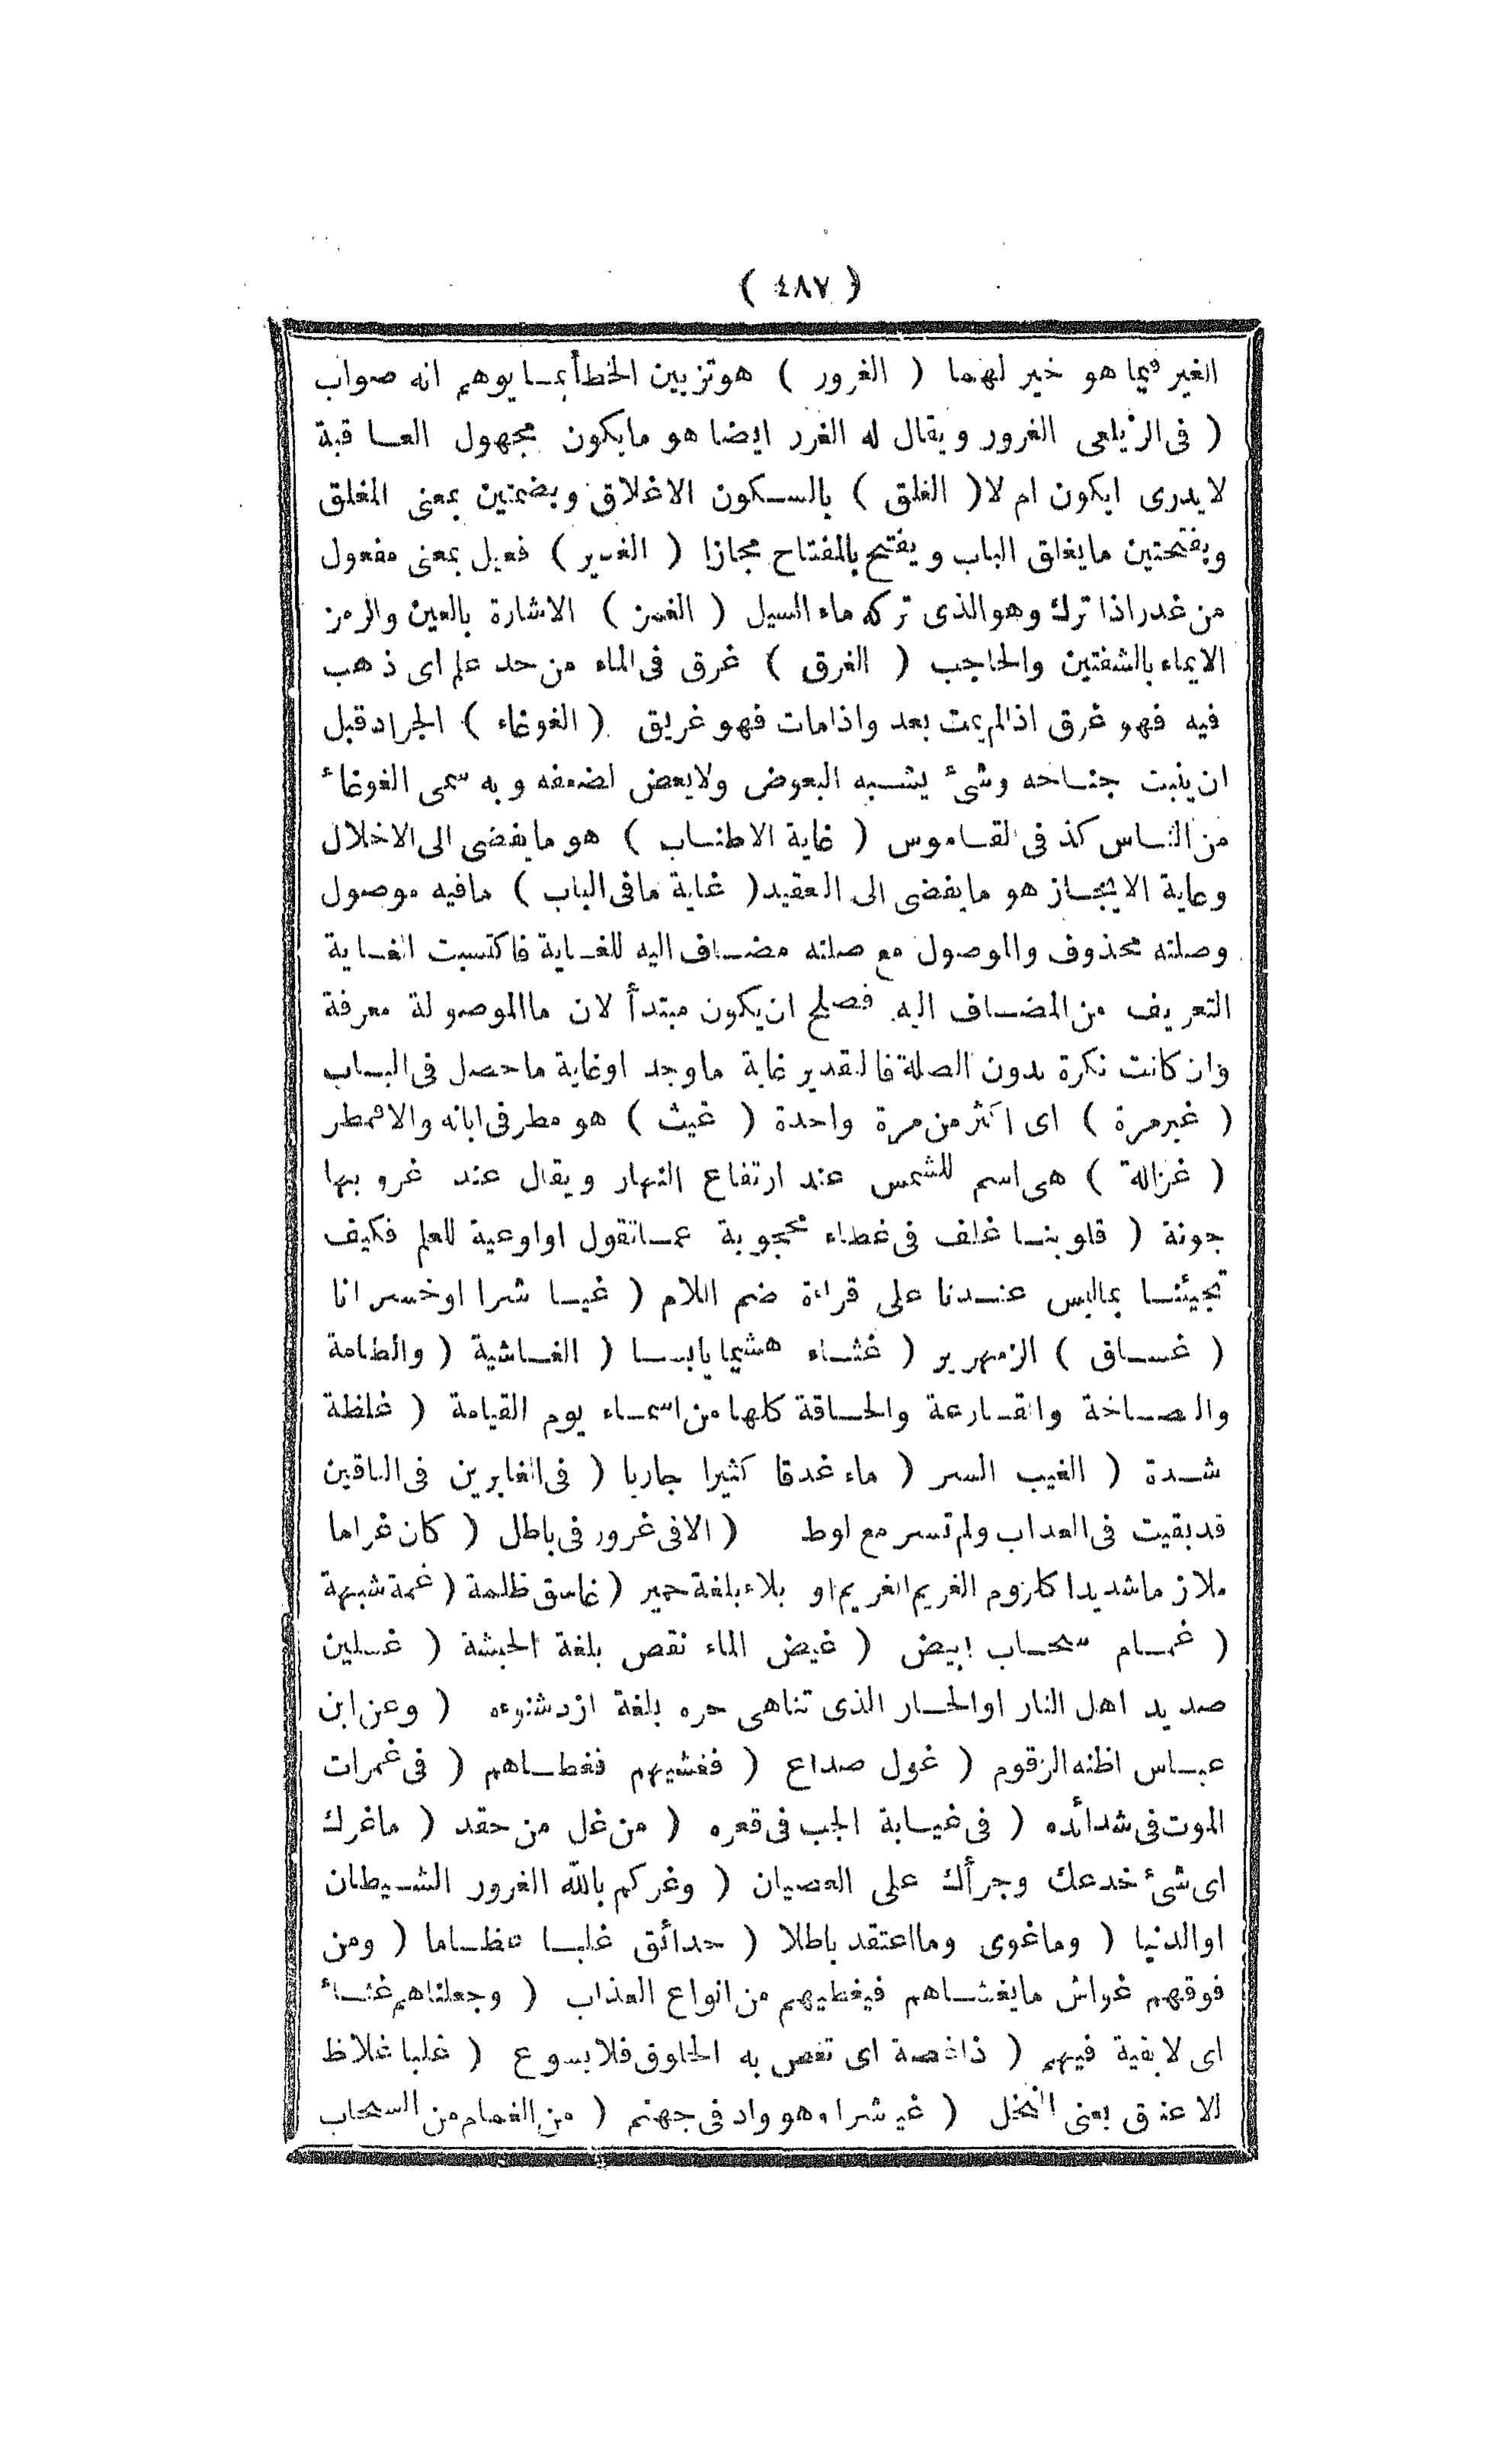 ( ٤٨٧ )
الغير فيما هو خير لهما ( الغرور ) هو تزيين الخطأ بما يوهم انه صواب
( فى الزيلعى الغرور ويقال له الغرر ايضا هو مايكون مجهول العاقبة
لايدرى ايكون ام لا ( الغلق ) بالسكون الاغلاق وبضمتين بمعنى المغلق
وبفتحتين مايغلق الباب ويفتح بالمفتاح مجازا ( الغدير ) فعيل بمعنى مفعول
من غدر اذا ترك وهو الذى تركه ماء السيل ( الغمز ) الاشارة بالعين والرمز
الايماء بالشفتين والحاجب ( الغرق ) غرق فى الماء من حد علم اى ذهب
فيه فهو غرق اذا لم يمت بعد واذا مات فهو غريق ( الغوغاء ) الجراد قبل
ان ينبت جناحه وشئ يشبه البعوض ولايعض لضعفه وبه سمى الغوغاء
من الناس كذ فى القاموس ( غاية الاطناب ) هو مايفضى الى الاخلال
وغاية الايجاز هو مايفضى الى العقيد ( غاية مافى الباب ) مافيه موصول
وصلته محذوف والموصول مع صلته مضاف اليه للغاية فاكتسبت الغاية
التعريف من المضاف اليه فصلح ان يكون مبتدأ لان ما الموصولة معرفة
وان كانت نكرة بدون الصلة فالتقدير غاية ماوجد اوغاية ماحصل فى الباب
( غير مرة ) اى اكثر من مرة واحدة ( غيث ) هو مطر فى ابانه والا فمطر
( غزالة ) هى اسم للشمس عند ارتفاع النهار ويقال عند غروبها
جونة ( قلوبنا غلف فى غطاء محجوبة عما تقول او اوعية للعلم فكيف
تجيئنا بماليس عندنا على قراءة ضم اللام ( غيا شرا اوخسرانا
( غساق ) الزمهرير ( غثاء هشيما يابسا ( الغاشية ( والطامة
والصاخة والقارعة والحاقة كلها من اسماء يوم القيامة ( غلظة
شدة ( الغيب السر ( ماء غدقا كثيرا جاريا ( فى الغابرين فى الباقين
قد بقيت فى العذاب ولم تسر مع لوط ( الا فى غرور فى باطل ( كان غراما
ملازما شديدا كلزوم الغريم الغريم او بلاء بلغة حمير ( غاسق ظلمة ( غمة شبهة
( غمام سحاب ابيض ( غيض الماء نقص بلغة الحبشة ( غسلين
صديد اهل النار اوالحار الذى تناهى حره بلغة ازد شنوءه ( وعن ابن
عباس اظنه الزقوم ( غول صداع ( فغشيهم فغطاهم ( فى غمرات
الموت فى شدائده ( فى غيابة الجب فى قعره ( من غل من حقد ( ماغرك
اى شئ خدعك وجرأك على العصيان ( وغركم بالله الغرور الشيطان
اوالدنيا ( وماغوى ومااعتقد باطلا ( حدائق غلبا عظاما ( ومن
فوقهم غواش مايغشاهم فيغطيهم من انواع العذاب ( وجعلناهم غثاء
اى لابقية فيهم ( ذاغصة اى تغص به الحلوق فلايسوغ ( غلبا غلاظ
الا عنق يعنى النخل ( غى شرا وهو واد فى جهنم ( من الغمام من السحاب